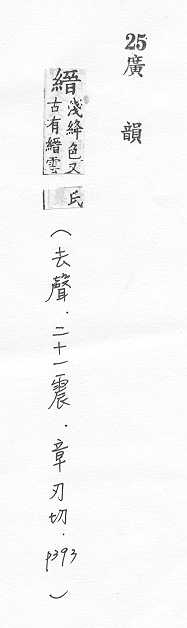 25廣韻
縉淺絳色又古有縉雲氏
（去聲．二十一震．章刃切．p393）